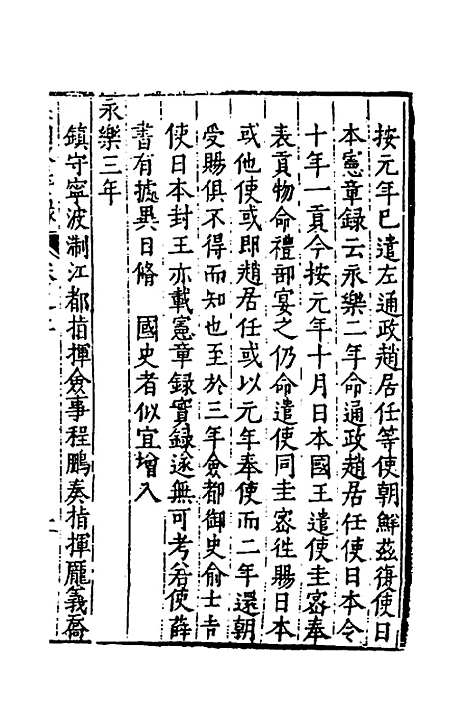 按元年已遣左通政趙居任等使朝鮮兹復使日
本憲章録云永樂二年命通政趙居任使日本令
十年一貢今按元年十月日本國王遣使圭密奉
表貢物命禮部宴之仍命遣使同圭密徃賜日本
或他使或即趙居任或以元年奉使而二年還朝
受賜俱不得而知也至於三年僉都御史俞士吉
使日本封王亦載憲章録實録遂無可考若使薛
書有㨿異日脩　國史者似宜增入
永樂三年
鎮守寧波淛江都指揮僉事程鵬奏指揮龎義齋